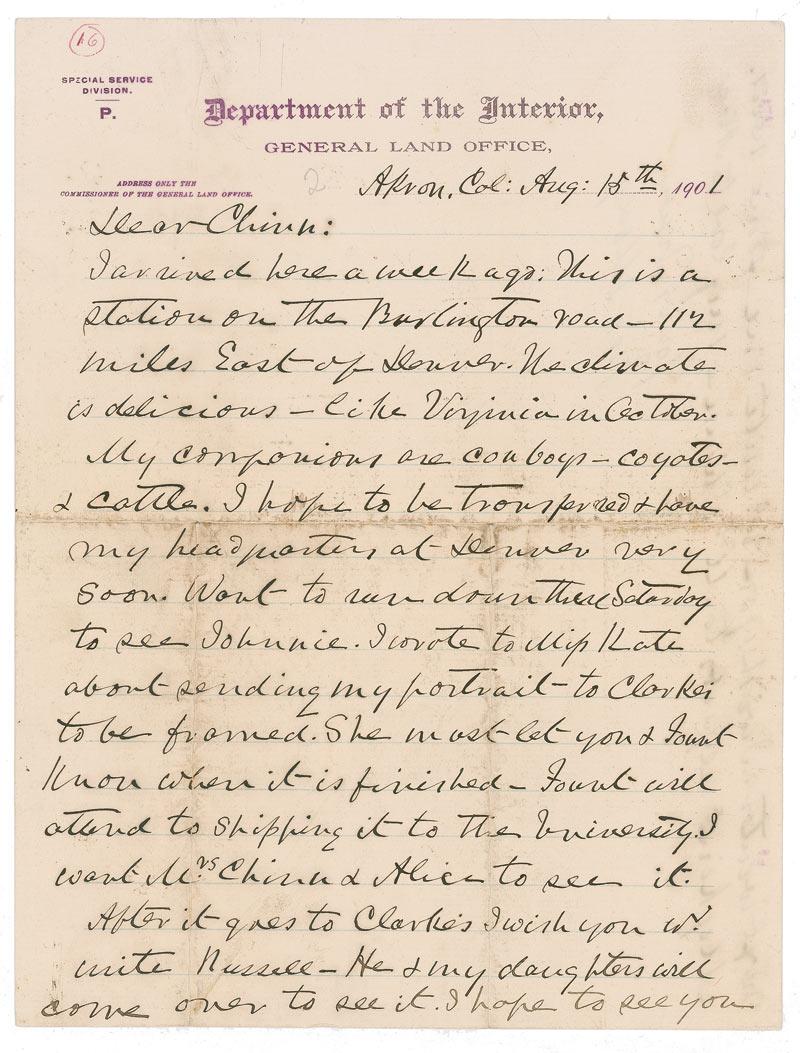 16
SPECIAL SERVICE
DIVISION.
P.
Department of the Interior,
GENERAL LAND OFFICE,
ADDRESS ONLY THE
COMMISSIONER OF THE GENERAL LAND OFFICE.
2
Akron, Col: Aug: 15th, 1901
Dear Chinn:
I arrived here a week ago: This is a
station on the Burlington road – 112
miles East of Denver. The climate
is delicious – like Virginia in October.
My companions are cowboys – coyotes –
& cattle. I hope to be transferred & have
my headquarters at Denver very
soon. Want to run down there Saturday
to see Johnnie. I wrote to Miss Kate
about sending my portrait to Clarkes
to be framed. She must let you & Fount
know when it is finished – Fount will
attend to shipping it to the University. I
want Mrs. Chinn & Alice to see it.
After it goes to Clarke's I wish you wd.
write Russell – He & my daughters will
come over to see it. I hope to see you